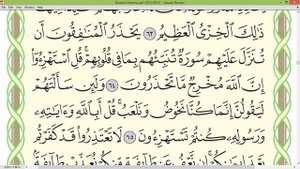 Mushaf Madina.pdf (SECURED) - Adobe Reader
ذَٰلِكَ ٱلْخِزْىُ ٱلْعَظِيمُ ٦٣ يَحْذَرُ ٱلْمُنَٰفِقُونَ أَن
تُنَزَّلَ عَلَيْهِمْ سُورَةٌ تُنَبِّئُهُم بِمَا فِى قُلُوبِهِمْ قُلِ ٱسْتَهْزِءُوٓا۟
إِنَّ ٱللَّهَ مُخْرِجٌ مَّا تَحْذَرُونَ ٦٤ وَلَئِن سَأَلْتَهُمْ
لَيَقُولُنَّ إِنَّمَا كُنَّا نَخُوضُ وَنَلْعَبُ قُلْ أَبِٱللَّهِ وَءَايَٰتِهِۦ
وَرَسُولِهِۦ كُنتُمْ تَسْتَهْزِءُونَ ٦٥ لَا تَعْتَذِرُوا۟ قَدْ كَفَرْتُم